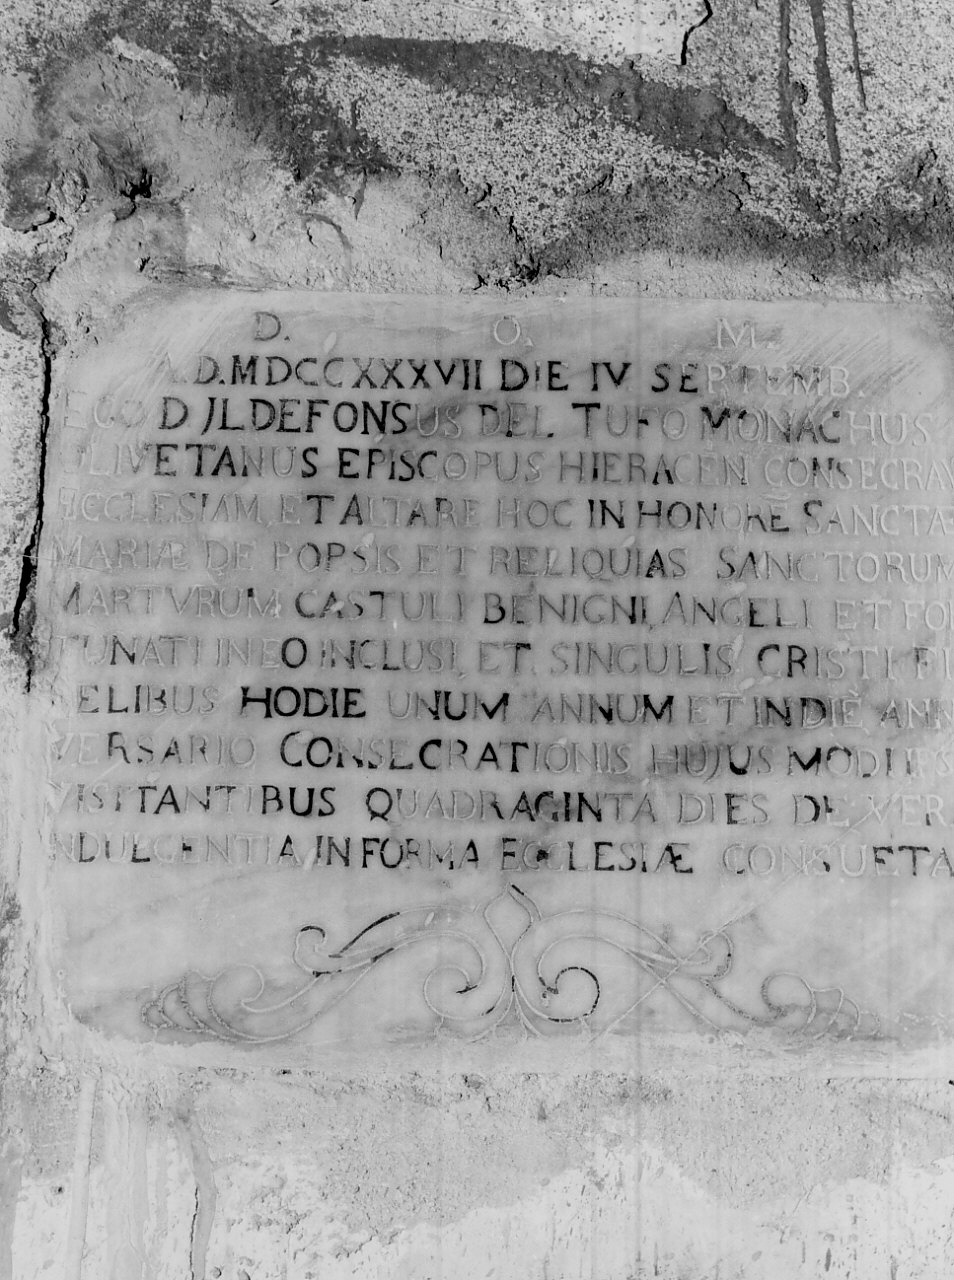 D. O. M.
A.D.MDCCXXXVII DIE IV SEPTEMB.
EGO D JLDEFONSUS DEL TUFO MONACHUS
OLIVETANUS EPISCOPUS HIERACEN CONSECRAV
ECCLESIAM, ET ALTARE HOC IN HONORE SANCTÆ
MARIÆ DE POPSIS ET RELIQUIAS SANCTORUM
MARTVRUM CASTULI BENIGNI, ANGELI ET FOR
TUNATI IN EO INCLUSI, ET SINGULIS CRISTI FI
ELIBUS HODIE UNUM ANNUM ET IN DIE ANNI
VERSARIO CONSECRATIONIS HUJUS MODI IPSA
VISITANTIBUS QUADRAGINTA DIES DE VERA
INDULGENTIA IN FORMA ECCLESIÆ CONSUETA